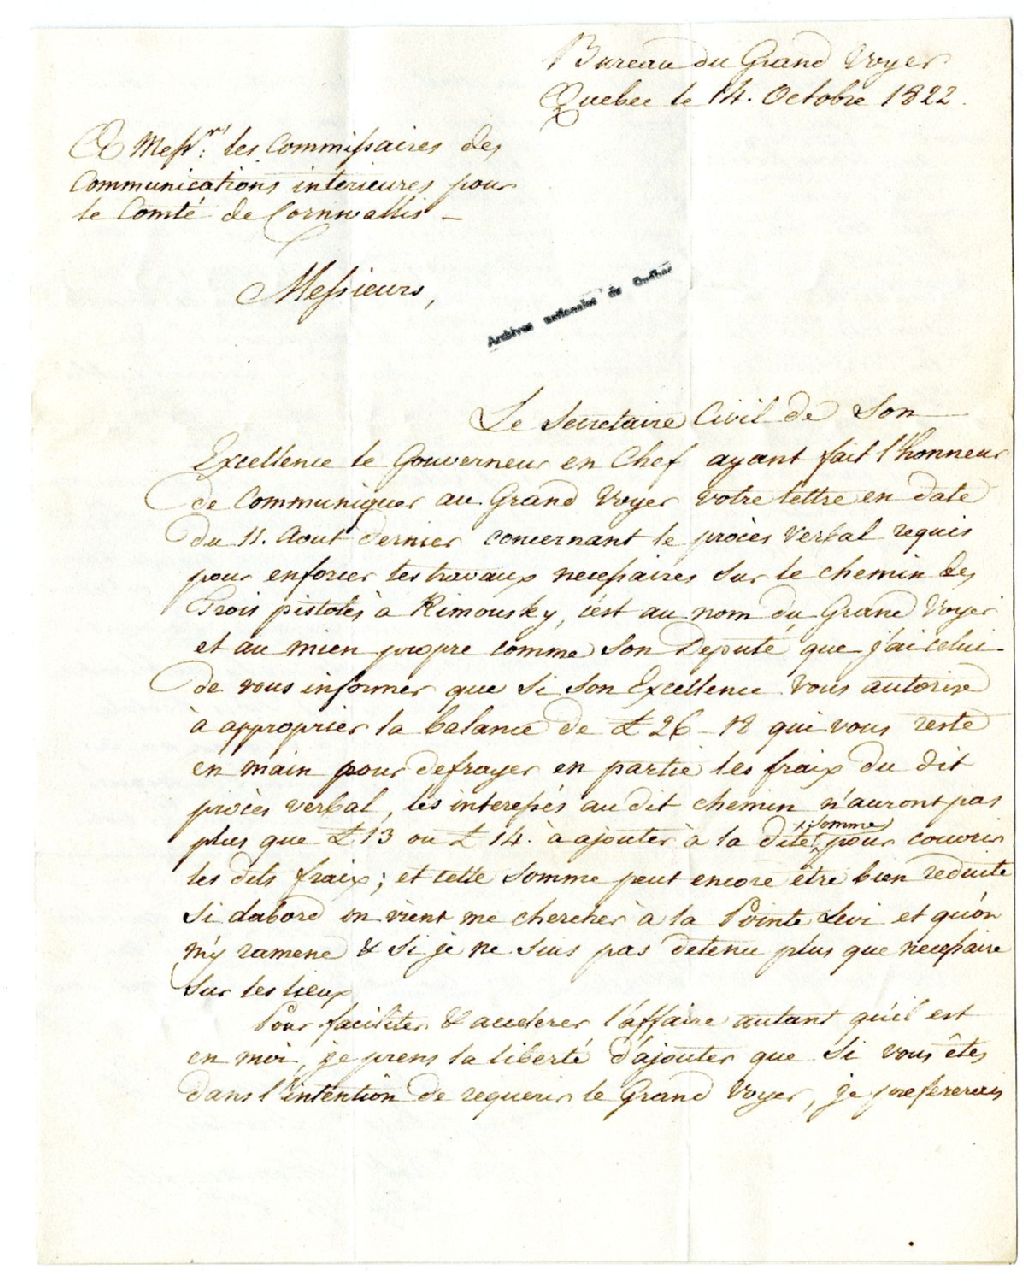 Bureau du Grand Voyer
Quebec le 14. Octobre 1822.
A Messrs. les Commissaires des
Communications interieures pour
le Comté de Cornwallis –
Messieurs,
Archives nationales du Québec
Le Secretaire Civil de Son
Excellence le Gouverneur en Chef ayant fait l'honneur
de Communiquer au Grand Voyer votre lettre en date
du 11. Aout dernier concernant le procès verbal requis
pour enforcer les travaux necessaires sur le chemin des
Trois pistoles à Rimousky, c'est au nom du Grand Voyer
et au mien propre comme Son Deputé que j'ai celui
de vous informer que si Son Excellence vous autorise
à approprier la balance de £ 26–18 qui vous reste
en main pour defrayer en partie les fraix du dit
procès verbal, les interessés au dit chemin n'auront pas
plus que £ 13 ou £ 14. à ajouter à la dite somme pour couvrir
les dits fraix; et cette somme peut encore être bien reduite
si dabord on vient me chercher à la Pointe Levi et qu'on
m'y ramene & si je ne suis pas detenu plus que necessaire
sur les lieux
Pour faciliter & accelerer l'affaire autant qu'il est
en moi, je prens la liberté d'ajouter que si vous êtes
dans l'intention de requerir le Grand Voyer, je prefererais